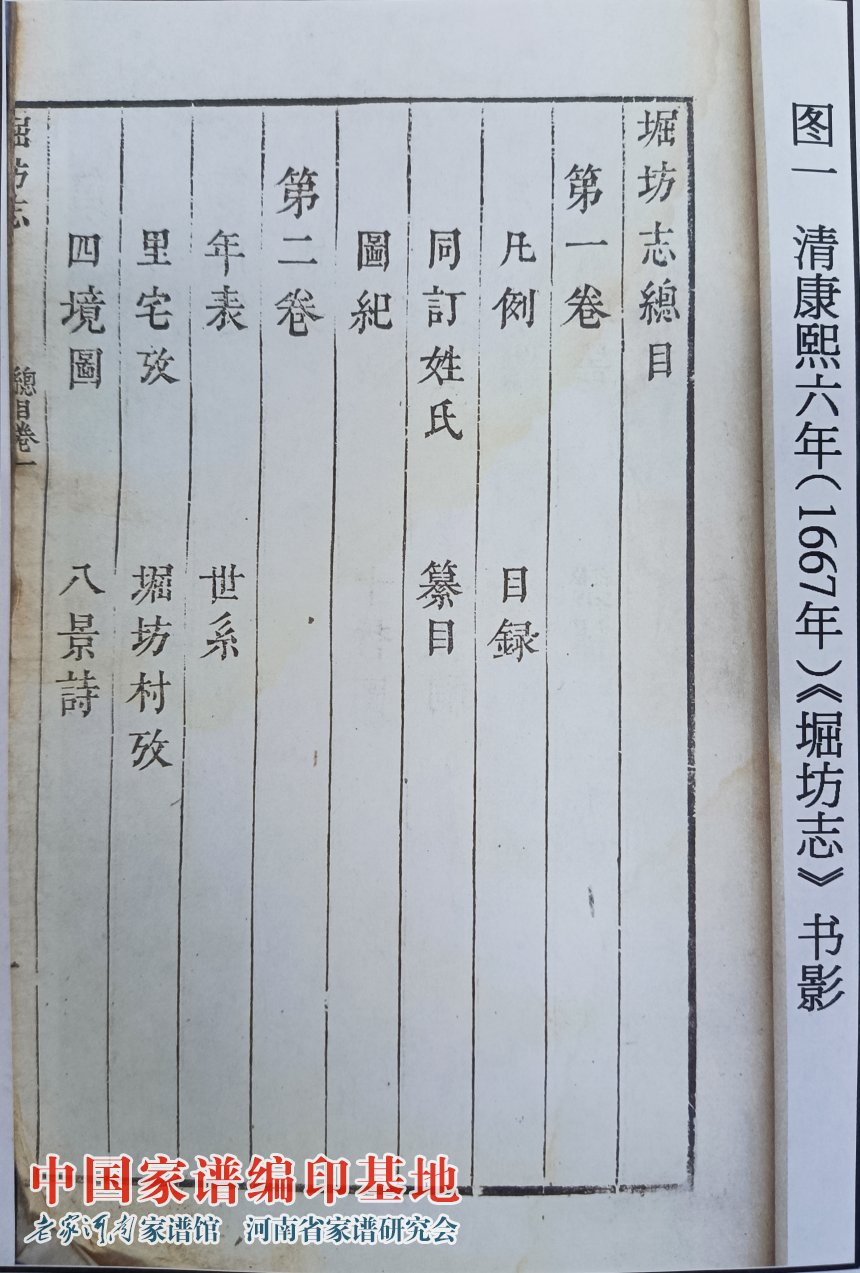 图一 清康熙六年(1667年)《堀坊志》书影
堀坊志總目
第一卷
凡例 目録
同訂姓氏 纂目
圖紀
第二卷
年表 世系
里宅攷 堀坊村攷
四境圖 八景詩
堀坊志 總目卷一
中国家谱编印基地
老家河南家谱馆 河南省家谱研究会